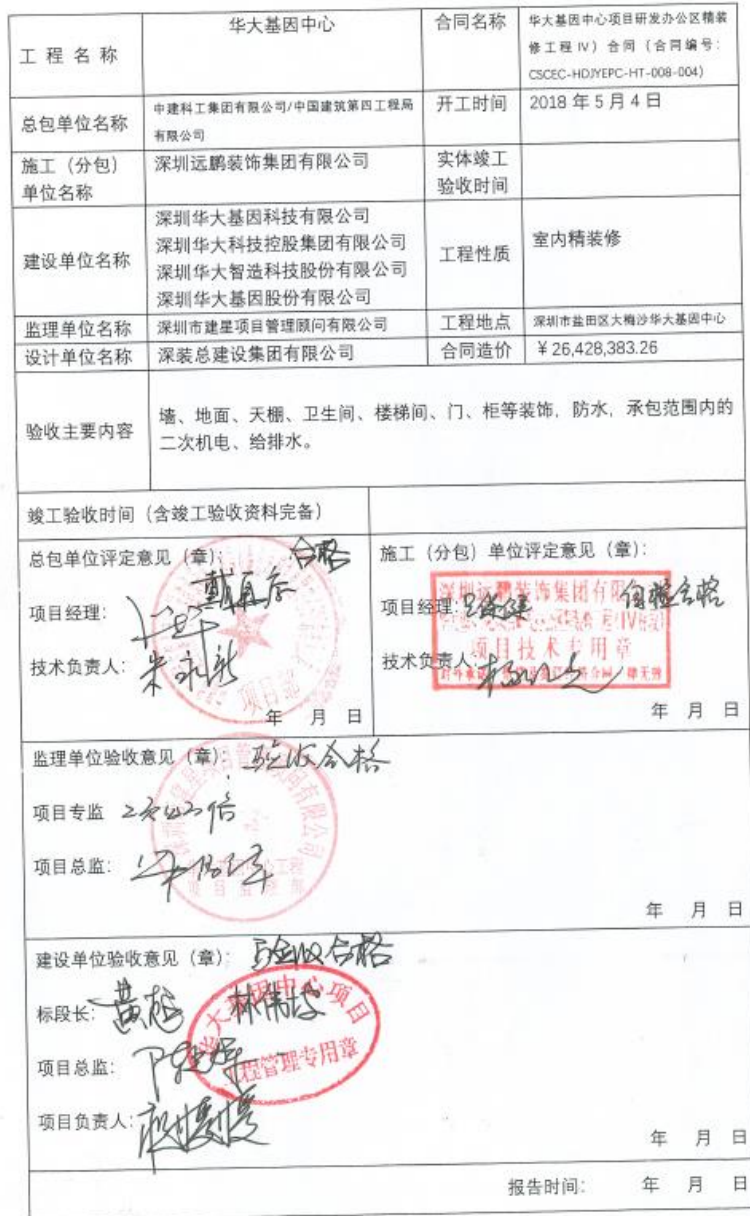 工程名称
华大基因中心
合同名称
华大基因中心项目研发办公区精装
修工程 IV）合同（合同编号：
CSCEC-HDJYEPC-HT-008-004)
总包单位名称
中建科工集团有限公司/中国建筑第四工程局
有限公司
开工时间
2018 年 5 月 4 日
施工（分包）
单位名称
深圳远鹏装饰集团有限公司
实体竣工
验收时间
建设单位名称
深圳华大基因科技有限公司
深圳华大科技控股集团有限公司
深圳华大智造科技股份有限公司
深圳华大基因股份有限公司
工程性质
室内精装修
监理单位名称
深圳市建星项目管理顾问有限公司
工程地点
深圳市盐田区大梅沙华大基因中心
设计单位名称
深装总建设集团有限公司
合同造价
￥26,428,383.26
验收主要内容
墙、地面、天棚、卫生间、楼梯间、门、柜等装饰，防水，承包范围内的
二次机电、给排水。
竣工验收时间（含竣工验收资料完备）
总包单位评定意见（章）：合格
项目经理：
技术负责人：朱永新
项目部
年 月 日
施工（分包）单位评定意见（章）：
深圳远鹏装饰集团有限
项目经理： 自检合格
项目技术专用章
技术负责人：
年 月 日
监理单位验收意见（章）：验收合格
项目专监
项目总监：
年 月 日
建设单位验收意见（章）：验收合格
标段长：黄 林伟
华大基因中心项目
工程管理专用章
项目总监：
项目负责人：
年 月 日
报告时间： 年 月 日